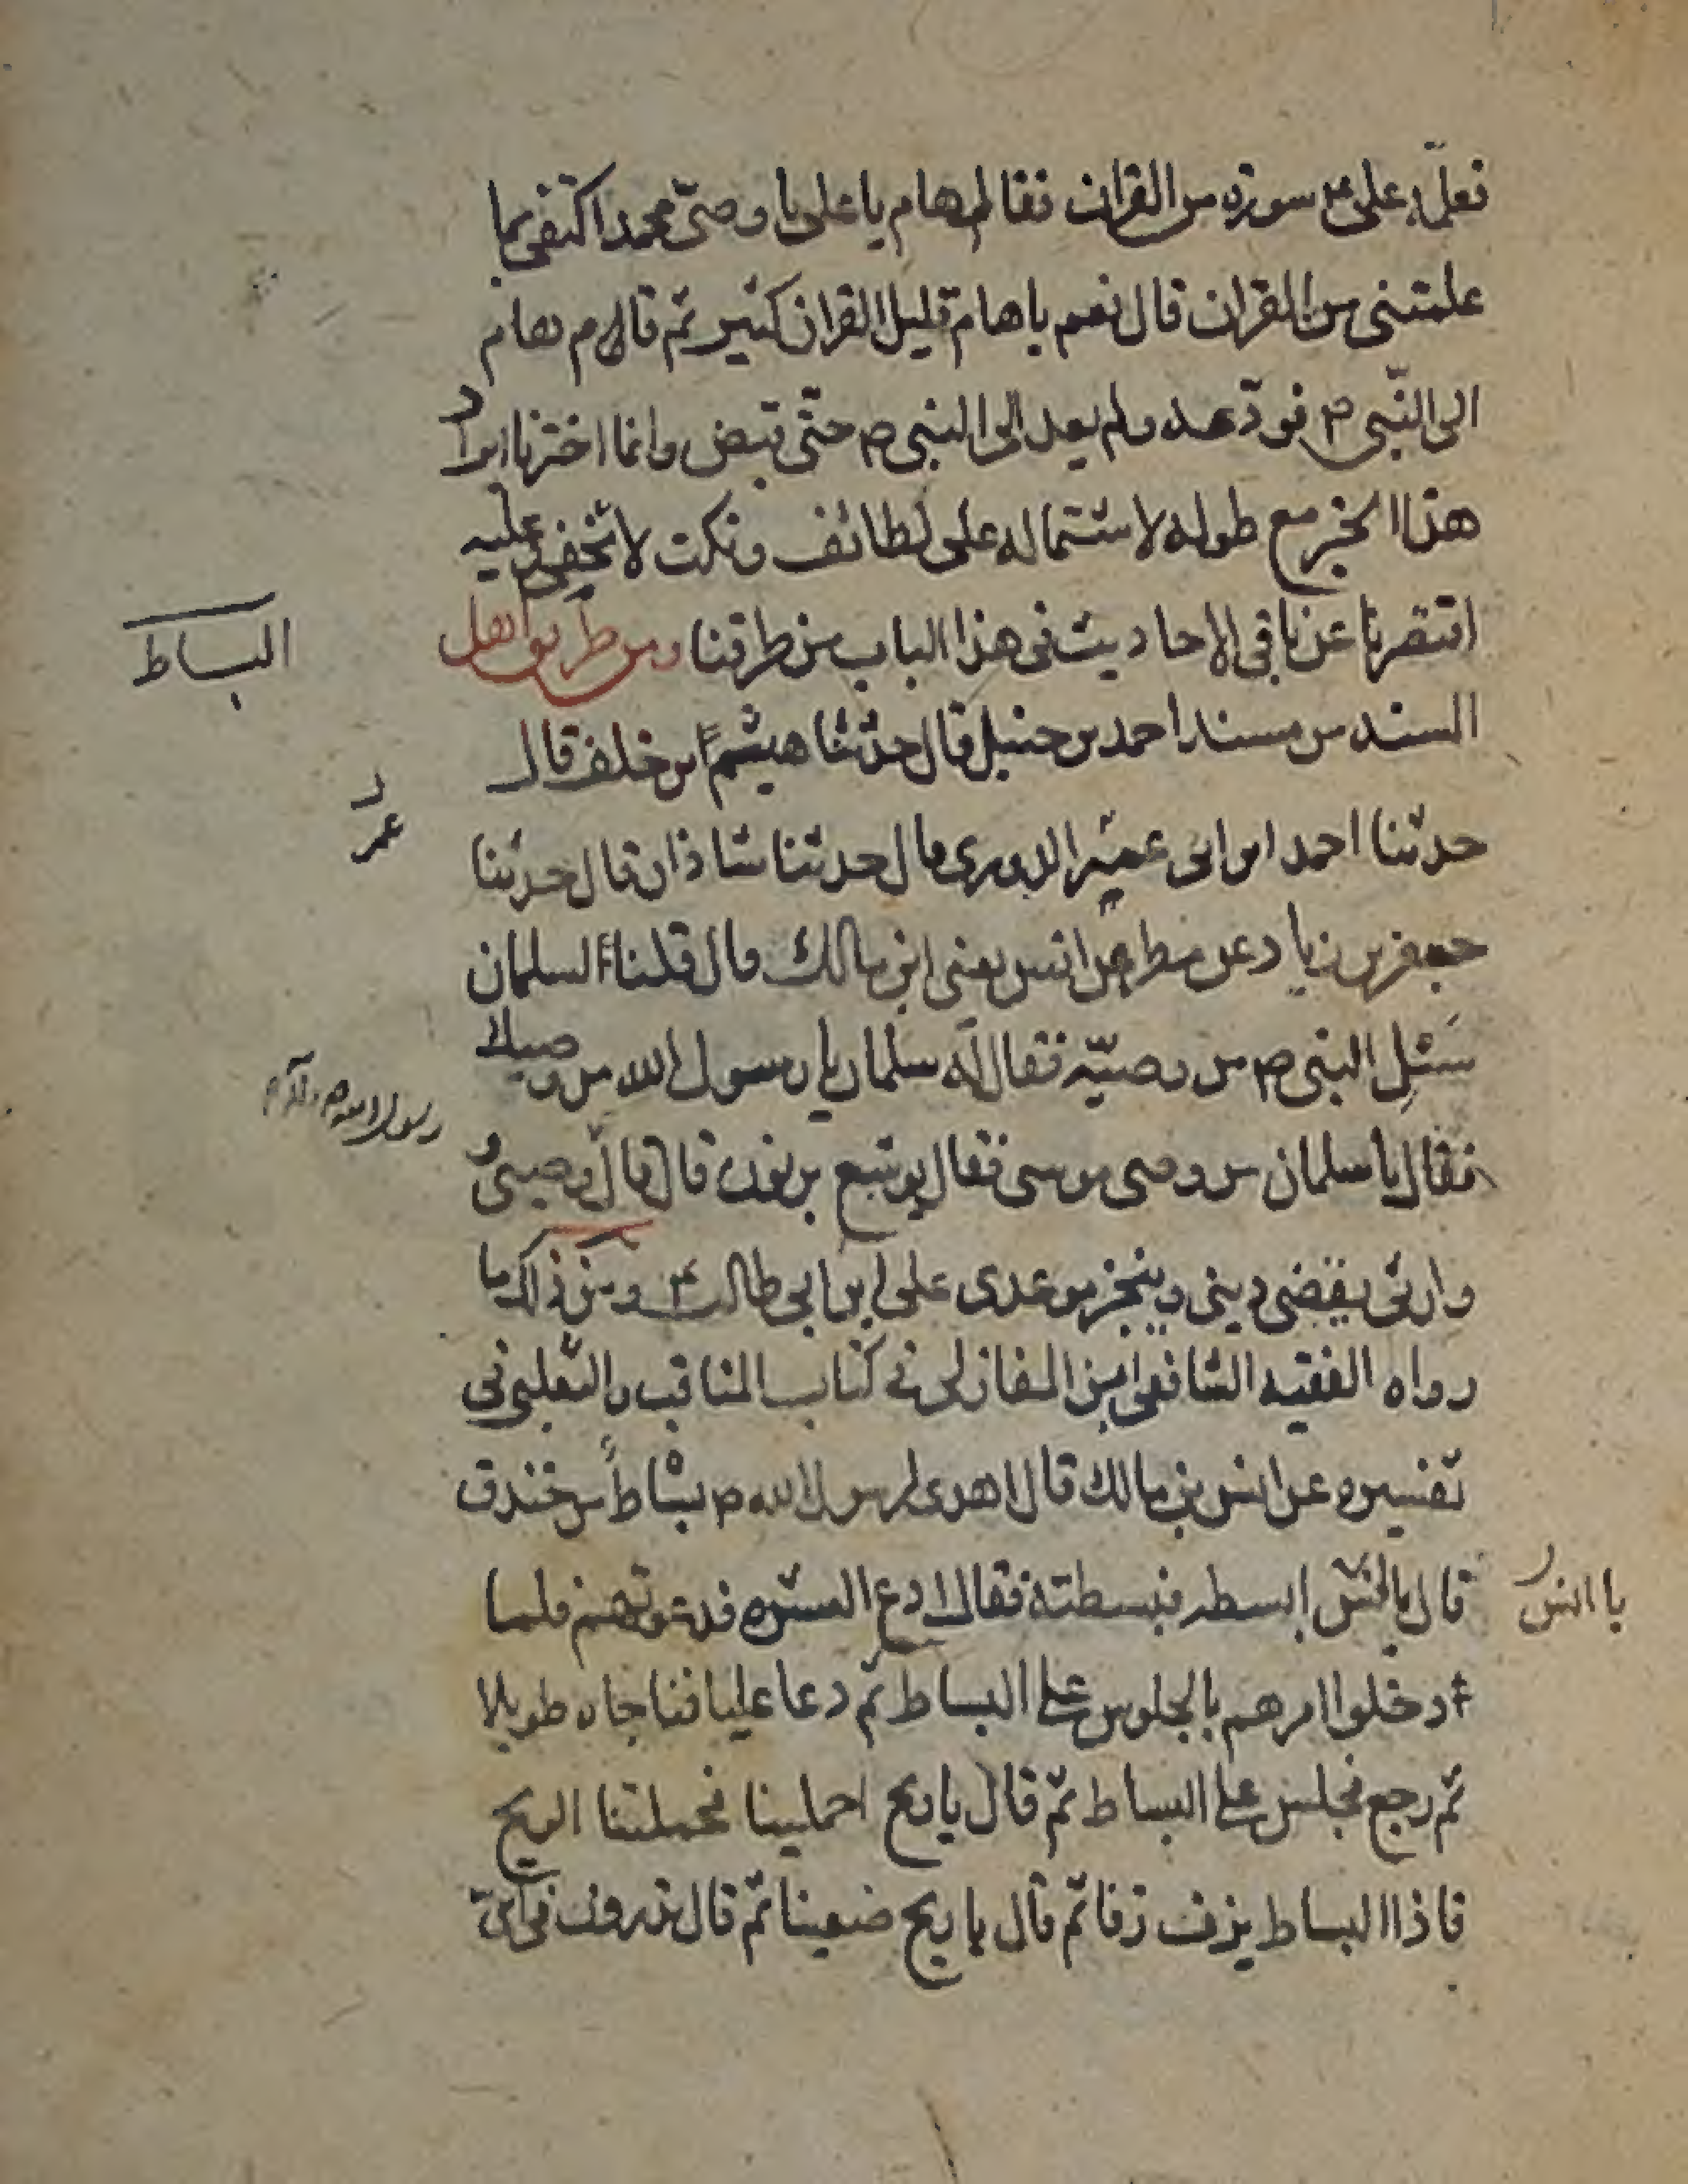 فعلمه على ع سورة من القران فقال لهام يا على يا وصى محمد اكتفى بما
علمتنى من القران قال نعم ياهام قليل القران كثير ثم قال م هام
الى النبى ص فودعه ولم يعد الى النبى ص حتى قبض وانما اخترنا ايراد
هذا الخبر مع طوله لاشتماله على لطائف ونكت لا تخفى عليه
اقتصرنا عن باقى الاحاديث فى هذا الباب من طرقنا ومن طريق اهل
السند من مسند احمد بن حنبل قال حدثنا هيثم ابن خلف قال
حدثنا احمد ابن ابى عمير الدورى قال حدثنا شاذان قال حدثنا
جعفر بن زياد عن مطر عن انس يعنى ابن مالك قال قلنا السلمان
سئل النبى ص من وصيه فقال له سلمان يا رسول الله من وصيك
فقال يا سلمان من وصى موسى فقال يوشع بن نون قال قال وصيى و
وارثى يقضى دينى وينجز موعدى على ابن ابى طالب ع ومن ذلك ما
رواه الفقيه الشافعى ابن المغازلى فى كتاب المناقب والثعلبى فى
تفسيره عن انس بن مالك قال اهدى لرسول الله ص بساط من خندق
قال يا انس ابسطه فبسطته فقال ادع العشره فدعوتهم فلما
دخلوا امرهم بالجلوس على البساط ثم دعا عليا فناجاه طويلا
ثم رجع فجلس على البساط ثم قال يا ريح احملينا فحملتنا الريح
فاذا البساط يزف زفا ثم قال يا ريح ضعينا ثم قال تدرون فى اى
البساط
عمر
رسول الله ص
يا انس